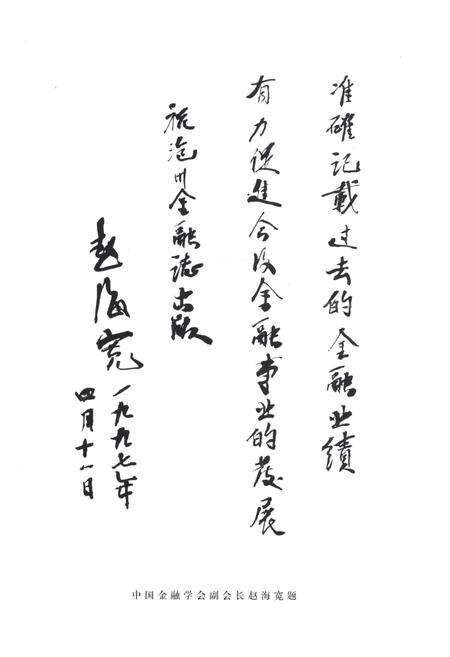 准確记载过去的金融业績
有力促進今後金融事业的發展
祝沧州金融誌出版
赵海宽
一九九七年
四月十一日
中国金融学会副会长赵海宽题